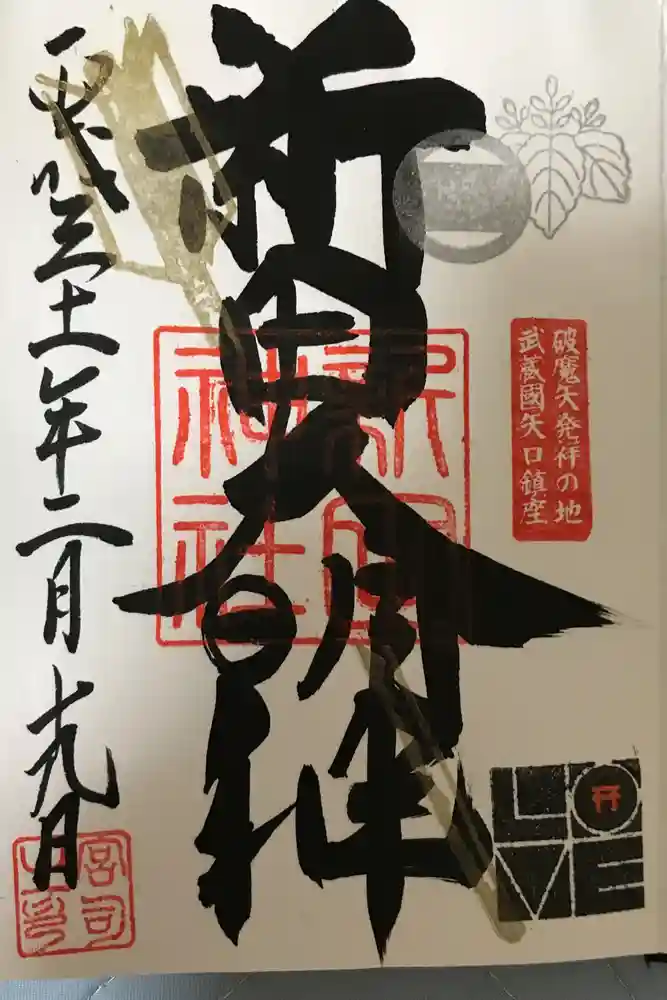 破魔矢発祥の地
武蔵國矢口鎮座
新田大明神
新田
神社
平成三十一年二月十九日
宮司
之印
LO
VE